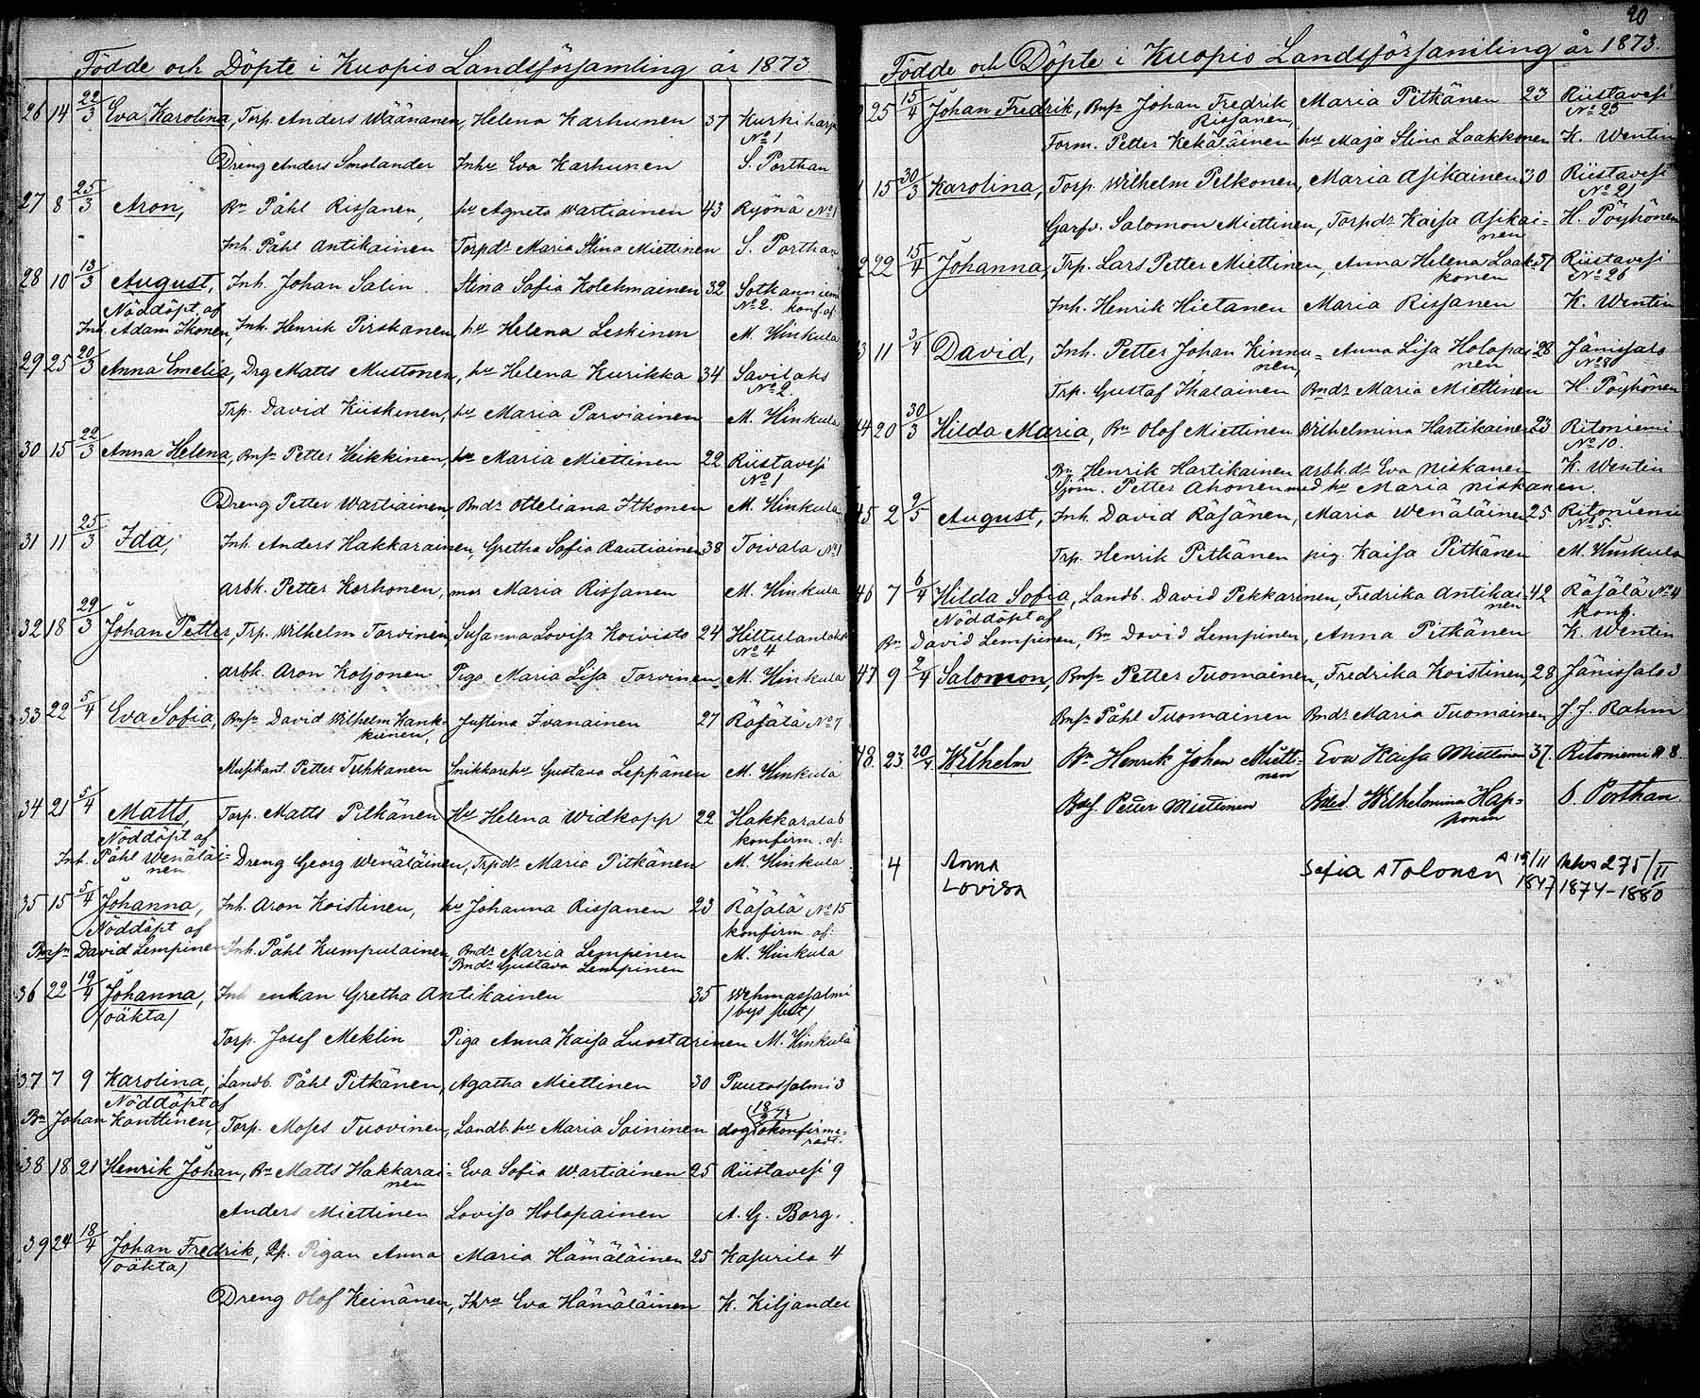 Födde och Döpte i Kuopio Landsförsamling år 1873.
26 14 22/3 Eva Karolina, Torp. Anders Wäänanen, Helena Karhunen 37 Kurki
No 1
Dreng Anders Smolander Inhu Eva Karhunen S. Porthan
27 8 25/3 Aron, Bn Påhl Rissanen, hu Agneta Wartiainen 43 Ryönä No 1
Inh. Påhl Antikainen Torpdr Maria Stina Miettinen S. Porthan
28 10 13/3 August, Inh. Johan Salin Stina Sofia Kolehmainen 32 Sotkanniemi
Nöddöpt af No 2. konf. af
Inh. Adam Ikonen, Inh. Henrik Pirskanen, hu Helena Leskinen M. Hinkula
29 25 20/3 Anna Emelia, Drg Matts Mustonen, hu Helena Kurikka 34 Savilaks
No 2.
Trp. David Kiiskinen, hu Maria Parviainen M. Hinkula
30 15 22/3 Anna Helena, Bnsn Petter Heikkinen, hu Maria Miettinen 22 Riistavesi
No 1
Dreng Petter Wartiainen, Bndr Otteliana Itkonen M. Hinkula
31 11 25/3 Ida, Inh. Anders Hakkarainen, Gretha Sofia Rautiainen 38 Toivala No 1
arbk. Petter Korhonen, mor Maria Rissanen M. Hinkula
32 18 29/3 Johan Petter, Trp. Wilhelm Tarvinen, Susanna Lovisa Koivisto 24 Hiltulanlaks
No 4
arbk. Aron Koljonen Piga Maria Lisa Tarvinen M. Hinkula
33 22 5/4 Eva Sofia, Bnsn David Wilhelm Hank- Justina Ivanainen 27 Räsälä No 7
kunen,
Musikant Petter Tuhkanen Snikkarehu Gustava Leppänen M. Hinkula
34 21 5/4 Matts, Torp. Matts Pitkänen Hu Helena Widkopp 22 Hakkaralab
Nöddöpt af konfirm. af:
Inh. Påhl Wenäläi- Dreng Georg Wenäläinen, Trpdr Maria Pitkänen M. Hinkula
nen
35 15 5/4 Johanna, Inh. Aron Koistinen, hu Johanna Rissanen 23 Räsälä No 15
Nöddöpt af konfirm af:
Bnsn David Lempinen Inh. Påhl Kumpulainen, Bndr Maria Lempinen M. Hinkula
Bndr Gustava Lempinen
36 22 19/4 Johanna, Inh enkan Gretha Antikainen 35 Wehmassalmi
(oäkta) (bys sket)
Torp. Josef Meklin Piga Anna Kaisa Luostarinen M. Hinkula
37 7 9 Karolina, Landb. Påhl Pitkänen, Agatha Miettinen 30 Puutossalmi 3
Nöddöpt af 18/ 73
Bn Johan Kanttinen, Torp. Moses Tuovinen, Landb. hu Maria Soininen dog okonfirme-
radt.
38 18 21 Henrik Johan, Bn Matts Hakkarai- Eva Sofia Wartiainen 25 Riistavesi 9
nen
Anders Miettinen Lovisa Holopainen A. G. Borg.
39 24 18/4 Johan Fredrik, Pigan Anna Maria Hämäläinen 25 Kasurila 4
(oäkta)
Dreng Olof Keinänen, Eva Hämäläinen K. Kiljander
90
Födde och Döpte i Kuopio Landsförsamling år 1873.
25 15/4 Johan Fredrik, Bnsn Johan Fredrik Maria Pitkänen 23 Riistavesi
Rissanen, No 25
Form. Petter Kekäläinen hu Maja Stina Laakkonen K. Wentin
15 30/3 Karolina, Torp. Wilhelm Pelkonen, Maria Asikainen 30 Riistavesi
No 21
Garfv. Salomon Miettinen, Torpdr Kaisa Asikai- H. Pöyhönen
nen
2 22 15/4 Johanna, Trp. Lars Petter Miettinen, Anna Helena Laak- 37 Riistavesi
konen No 26
Inh. Henrik Hietanen Maria Rissanen K. Wentin
3 11 3/4 David, Inh. Petter Johan Kinnu- Anna Lisa Holopai- 28 Jänissalo
nen, nen No 8
Trp. Gustaf Ihalainen Bndr Maria Miettinen H. Pöyhönen
44 20 30/3 Hilda Maria, Bn Olof Miettinen Wilhelmina Hartikainen 23 Ritoniemi
No 10.
Bn Henrik Hartikainen arbk.dr Eva Niskanen K. Wentin
Sjöm. Petter Ahonen med hu Maria Niskanen.
45 2 9/5 August, Inh. David Räsänen, Maria Wenäläinen 25 Ritoniemi
No 5.
Trp. Henrik Pitkänen pig. Kaisa Pitkänen M. Hinkula
46 7 6/4 Hilda Sofia, Landb. David Pekkarinen, Fredrika Antikai- 42 Räsälä No 4
Nöddöpt af nen konf.
Bn David Lempinen, Bn David Lempinen, Anna Pitkänen K. Wentin
47 9 2/4 Salomon, Bnsn Petter Tuomainen, Fredrika Koistinen, 28 Jänissalo 3
Bnsn Påhl Tuomainen Bndr Maria Tuomainen J. J. Rahm
48. 23 20/4 Wilhelm Bn Henrik Johan Miett- Eva Kaisa Miettinen 37. Ritoniemi No 8.
nen
Bdsf. Petter Miettinen Wilhelmina Hap- S. Porthan
ponen
4 Anna Sofia A Tolonen A 19/11 khs 275/II
Lovisa 1847 1874-1880